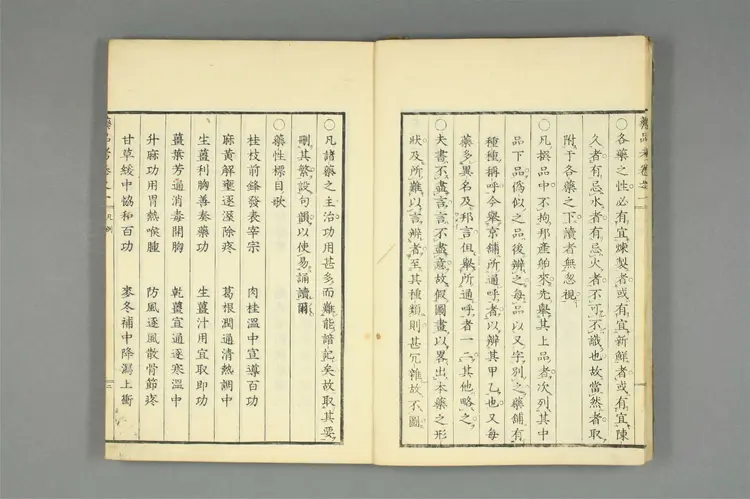 ○各藥之性必有宜煉製者或有宜新鮮者或有宜陳
久者有忌水者有忌火者不可不識也故當然者取
附予各藥之下讀者無忽視
○凡撰品中不拘邦產舶來先舉其上品者次列其中
品下品僞似之品後辨之每品以又字別之藥舖有
種種稱呼今舉京舖所通呼者以辨其甲乙也又每
藥多異名及邦言但舉所通呼者一二其他略之
○夫書不盡言言不盡意故假圖畫以畧出本藥之形
狀及所難以言辨者至其種類則甚冗雜故不圖
○凡諸藥之主治功用甚多而難能諳記矣故取其要
刪其繁設句韻以使易誦讀爾
○藥性標目歌
桂枝前鋒發表宰宗 肉桂溫中宣導百功
麻黃解壅逐溼除疼 葛根潤通清熱調中
生薑利胸善奏藥功 生薑汁用宜取即功
薑葉芳通消毒開胸 乾薑宜通逐寒溫中
升麻功用胃熱喉腫 防風逐風散骨節疼
甘草緩中協和百功 麥冬補中降瀉上衝